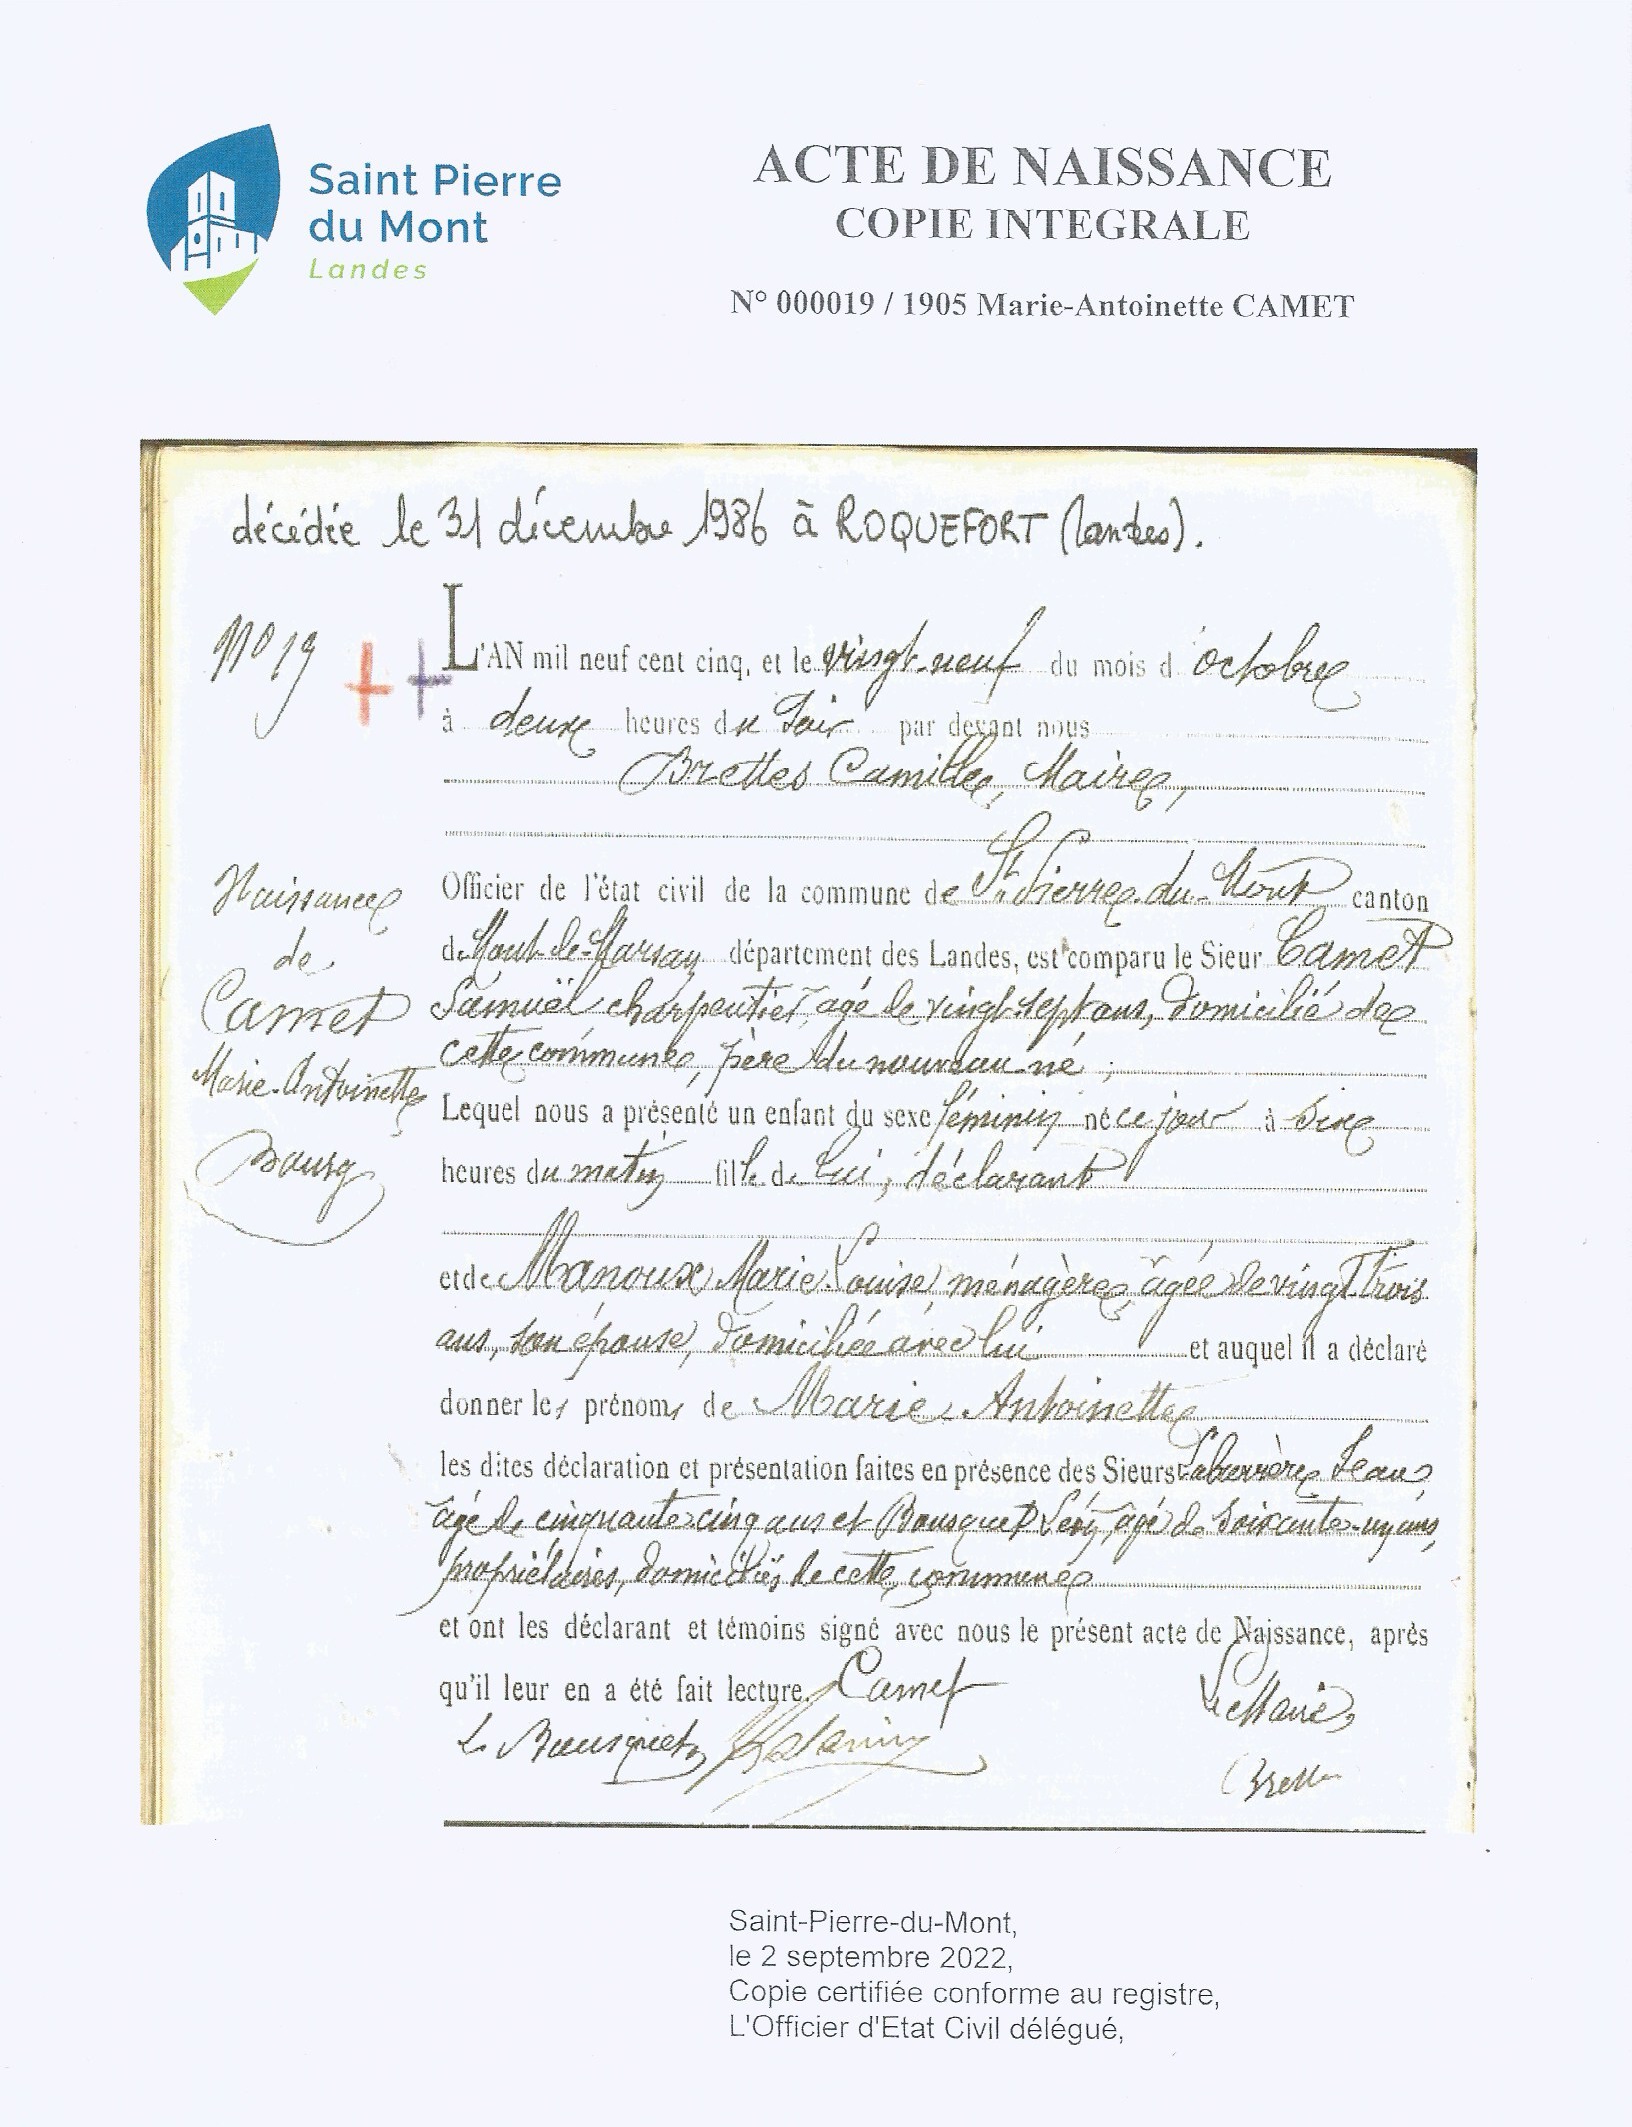 Saint Pierre
du Mont
Landes
ACTE DE NAISSANCE
COPIE INTEGRALE
N° 000019 / 1905 Marie-Antoinette CAMET
décédée le 31 décembre 1986 à ROQUEFORT (Landes).
N° 19
L'AN mil neuf cent cinq, et le vingt-neuf du mois d'octobre
à deux heures du soir par devant nous
Brettes Camille, Maire,
Officier de l'état civil de la commune de St Pierre-du-Mont canton
de Mont-de-Marsan département des Landes, est comparu le Sieur Camet
Samuël charpentier, agé de vingt-sept ans, domicilié de
cette commune, père du nouveau né ;
Lequel nous a présenté un enfant du sexe féminin né ce jour à six
heures du matin fille de lui, déclarant
et de Manoux Marie-Louise, ménagère, âgée de vingt-trois
ans, son épouse, domiciliée avec lui et auquel il a déclaré
donner les prénoms de Marie-Antoinette
les dites déclaration et présentation faites en présence des Sieurs Labarrère Jean,
âgé de cinquante-cinq ans et Bousquet Lévy, âgé de soixante-un ans,
propriétaires, domiciliés de cette commune
et ont les déclarant et témoins signé avec nous le présent acte de Naissance, après
qu'il leur en a été fait lecture. Camet
Le Maire,
L. Bousquet
Brettes
Naissance
de
Camet
Marie-Antoinette
Bourg
Saint-Pierre-du-Mont,
le 2 septembre 2022,
Copie certifiée conforme au registre,
L'Officier d'Etat Civil délégué,